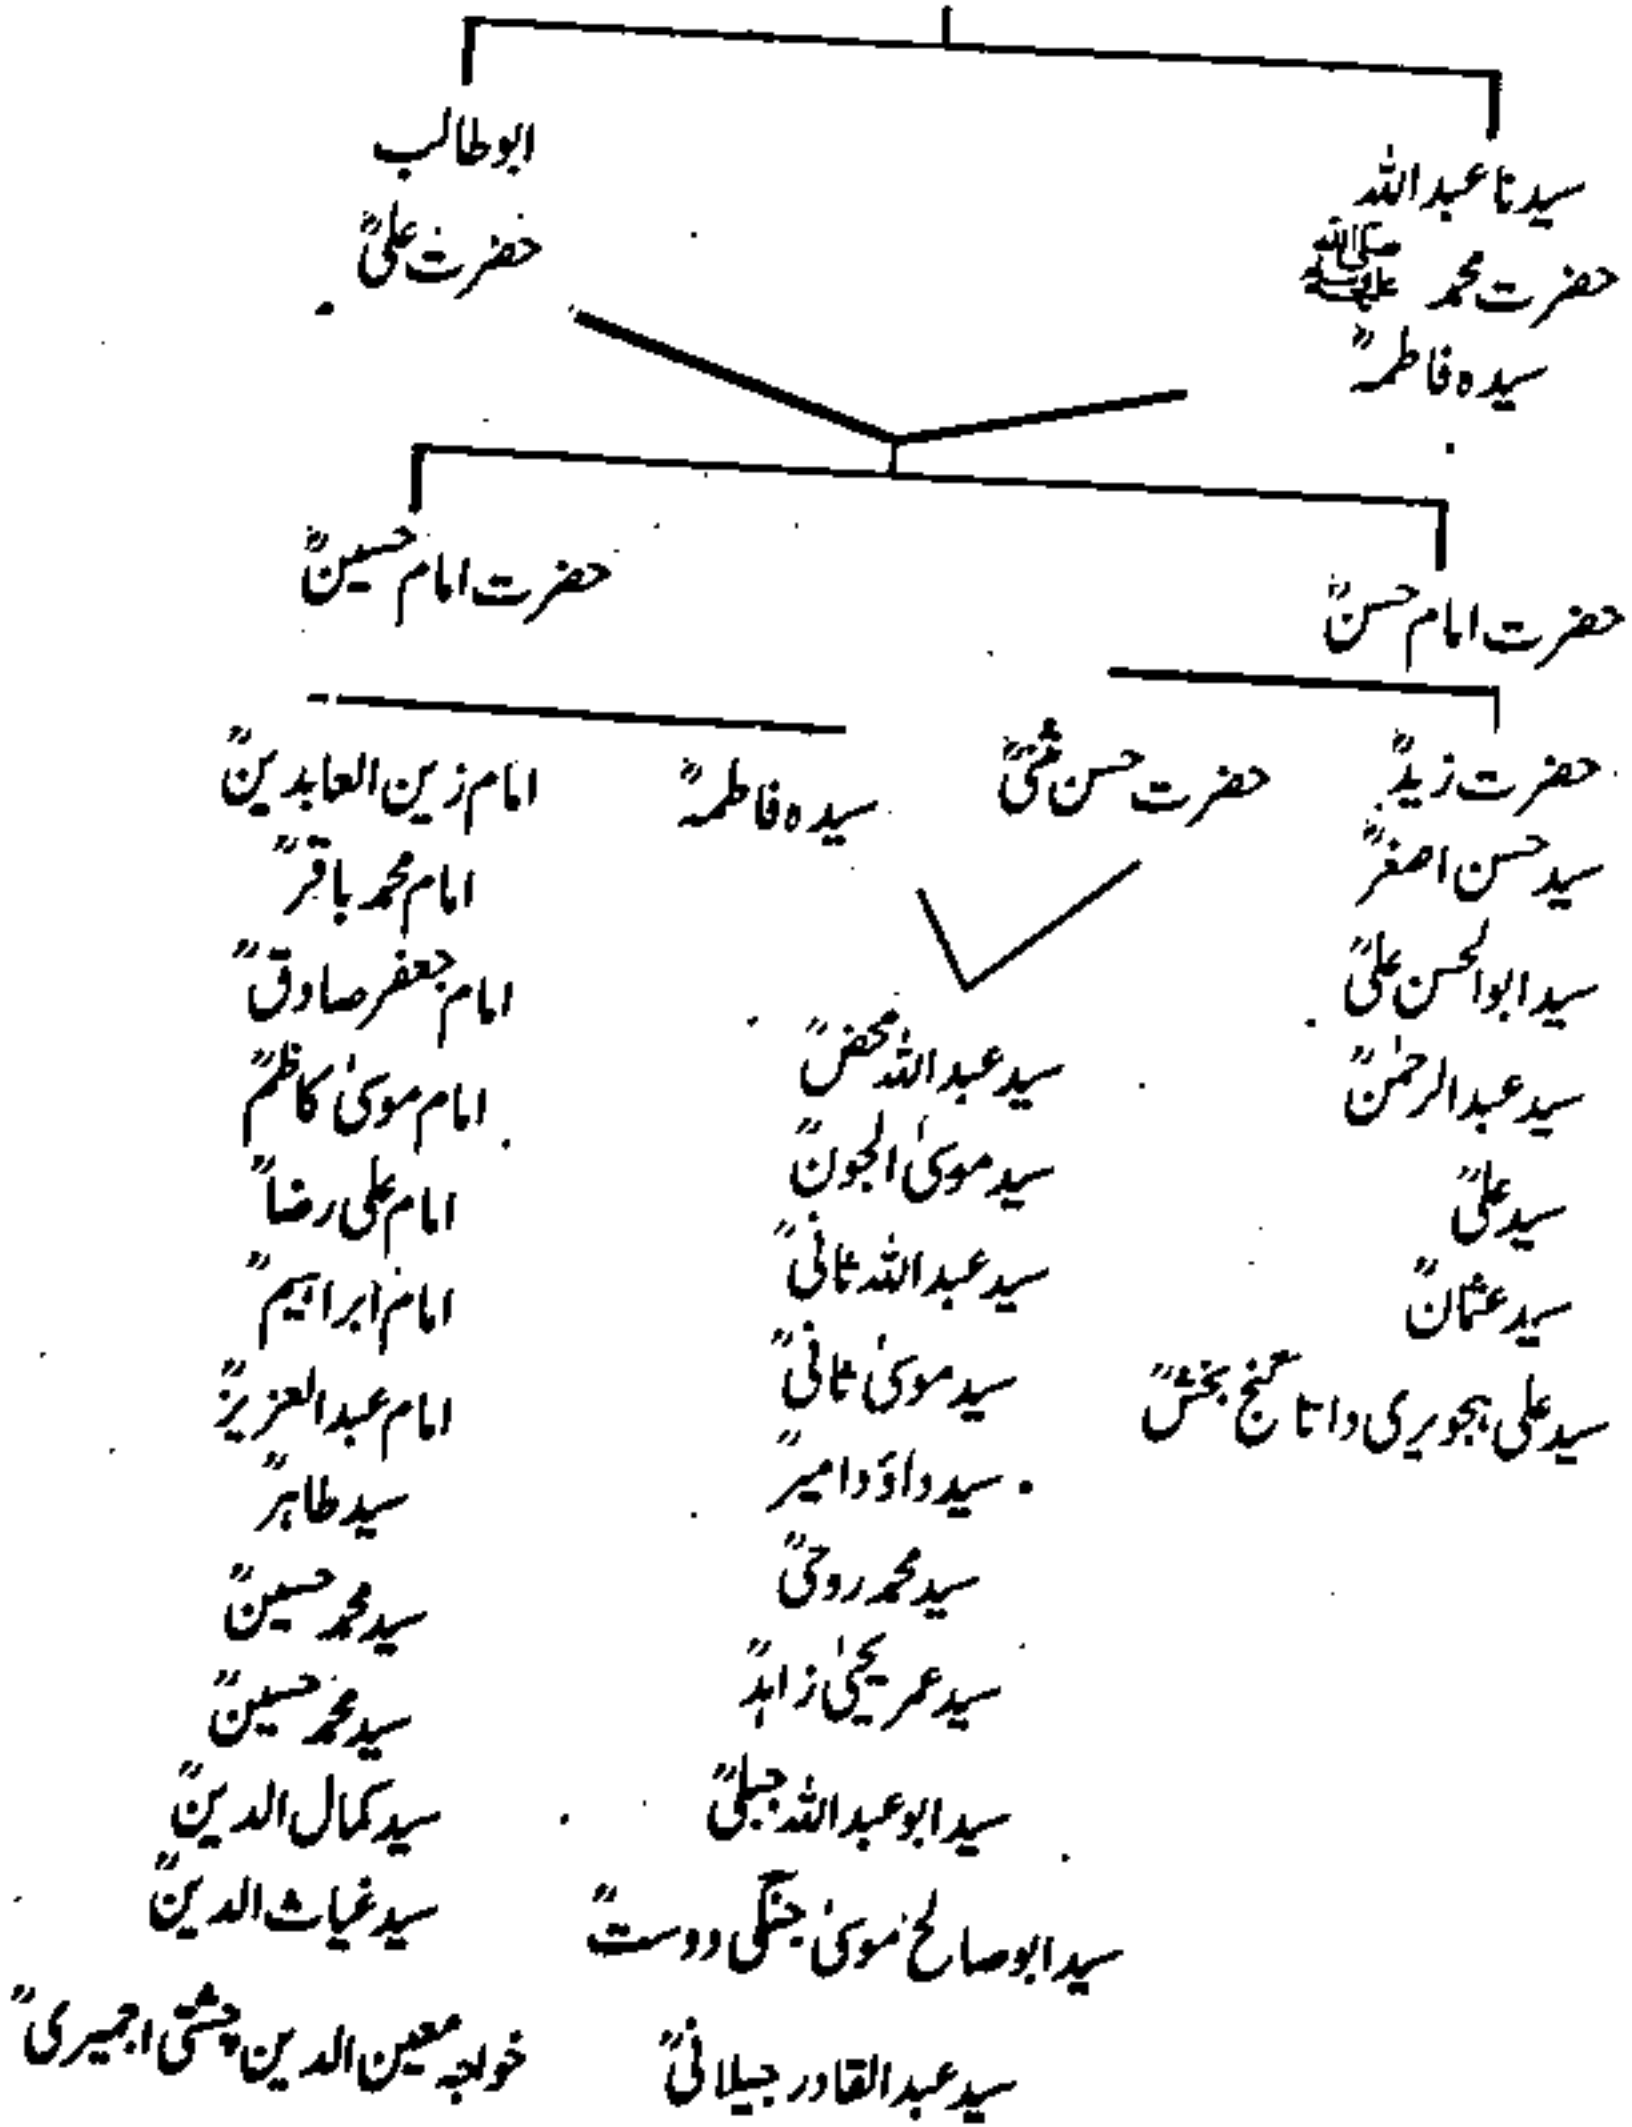 سیدنا عبداللہ
حضرت محمد ﷺ
سیدہ فاطمہؓ
ابوطالب
حضرت علیؓ
حضرت امام حسنؓ
حضرت امام حسینؓ
حضرت زیدؓ
سید حسن اصغرؒ
سید ابوالحسن علیؒ
سید عبدالرحمٰنؒ
سید علیؒ
سید عثمانؒ
سید علی ہجویری داتا گنج بخشؒ
حضرت حسن مثنیٰؓ
سیدہ فاطمہؓ
سید عبداللہ محضؒ
سید موسیٰ الجونؒ
سید عبداللہ ثانیؒ
سید موسیٰ ثانیؒ
سید داؤد امیرؒ
سید محمد روحیؒ
سید عمر یحییٰ زاہدؒ
سید ابو عبداللہ جبلیؒ
سید ابو صالح موسیٰ جنگی دوستؒ
سید عبدالقادر جیلانیؒ
امام زین العابدینؓ
امام محمد باقرؒ
امام جعفر صادقؒ
امام موسیٰ کاظمؒ
امام علی رضاؒ
امام ابراہیمؒ
امام عبدالعزیزؒ
سید طاہرؒ
سید محمد حسینؒ
سید محمد حسینؒ
سید کمال الدینؒ
سید غیاث الدینؒ
خواجہ معین الدین چشتی اجمیریؒ